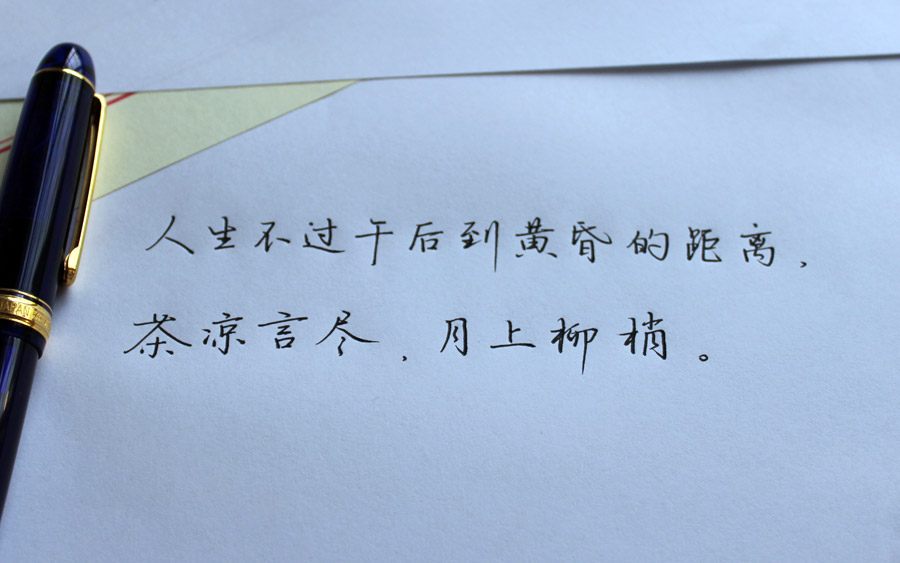 JAPAN
人生不过午后到黄昏的距离，
茶凉言尽，月上柳梢。